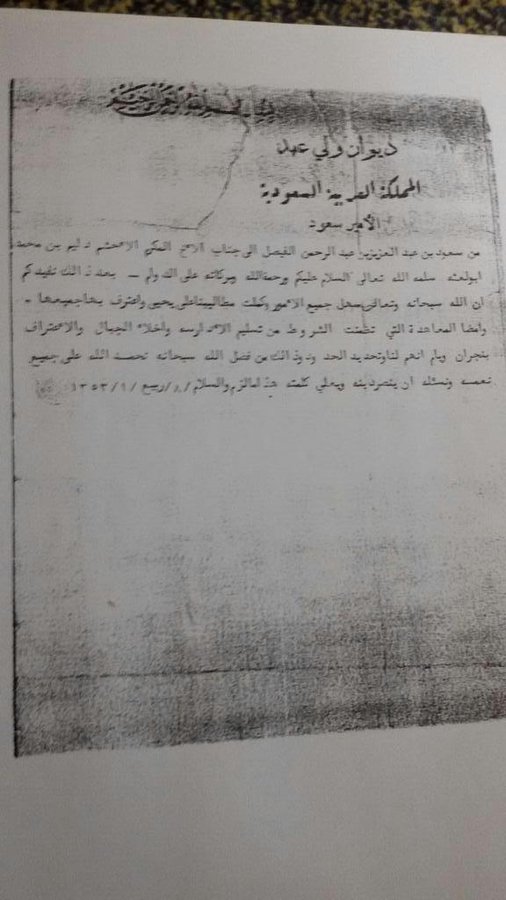 بسم الله الرحمن الرحيم
ديوان ولي عهد
المملكة العربية السعودية
الأمير سعود
من سعود بن عبد العزيز بن عبد الرحمن الفيصل الى جناب الاخ المكرم الاحشم دليم بن محمد
ابولعثه سلمه الله تعالى السلام عليكم ورحمة الله وبركاته على الدوام _ بعد ذالك نفيدكم
ان الله سبحانه وتعالى سهل جميع الأمور وكملت مطاليبنا على يحيى واعترف بها جميعها _
وامضا المعاهدة التي تظمنت الشروط من تسليم الادارسه واخلاء الجبال والاعتراف
بنجران ويام انهم لنا وتحديد الحد وذالك من فضل الله سبحانه نحمده الله على جميع
نعمه ونسئله ان ينصر دينه ويعلي كلمته هذا مالزم والسلام / ٨ / ربيع / ١ / ١٣٥٣